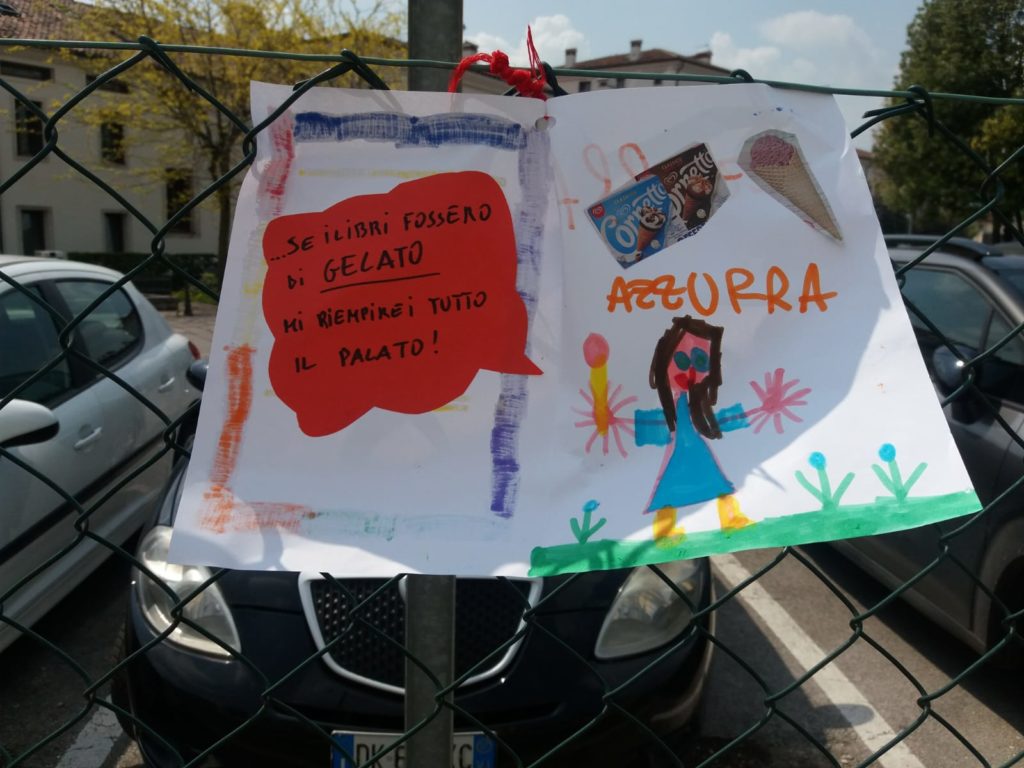 ...SE I LIBRI FOSSERO
DI GELATO
MI RIEMPIREI TUTTO
IL PALATO!
Cornetto
Cornetto
AZZURRA
DK